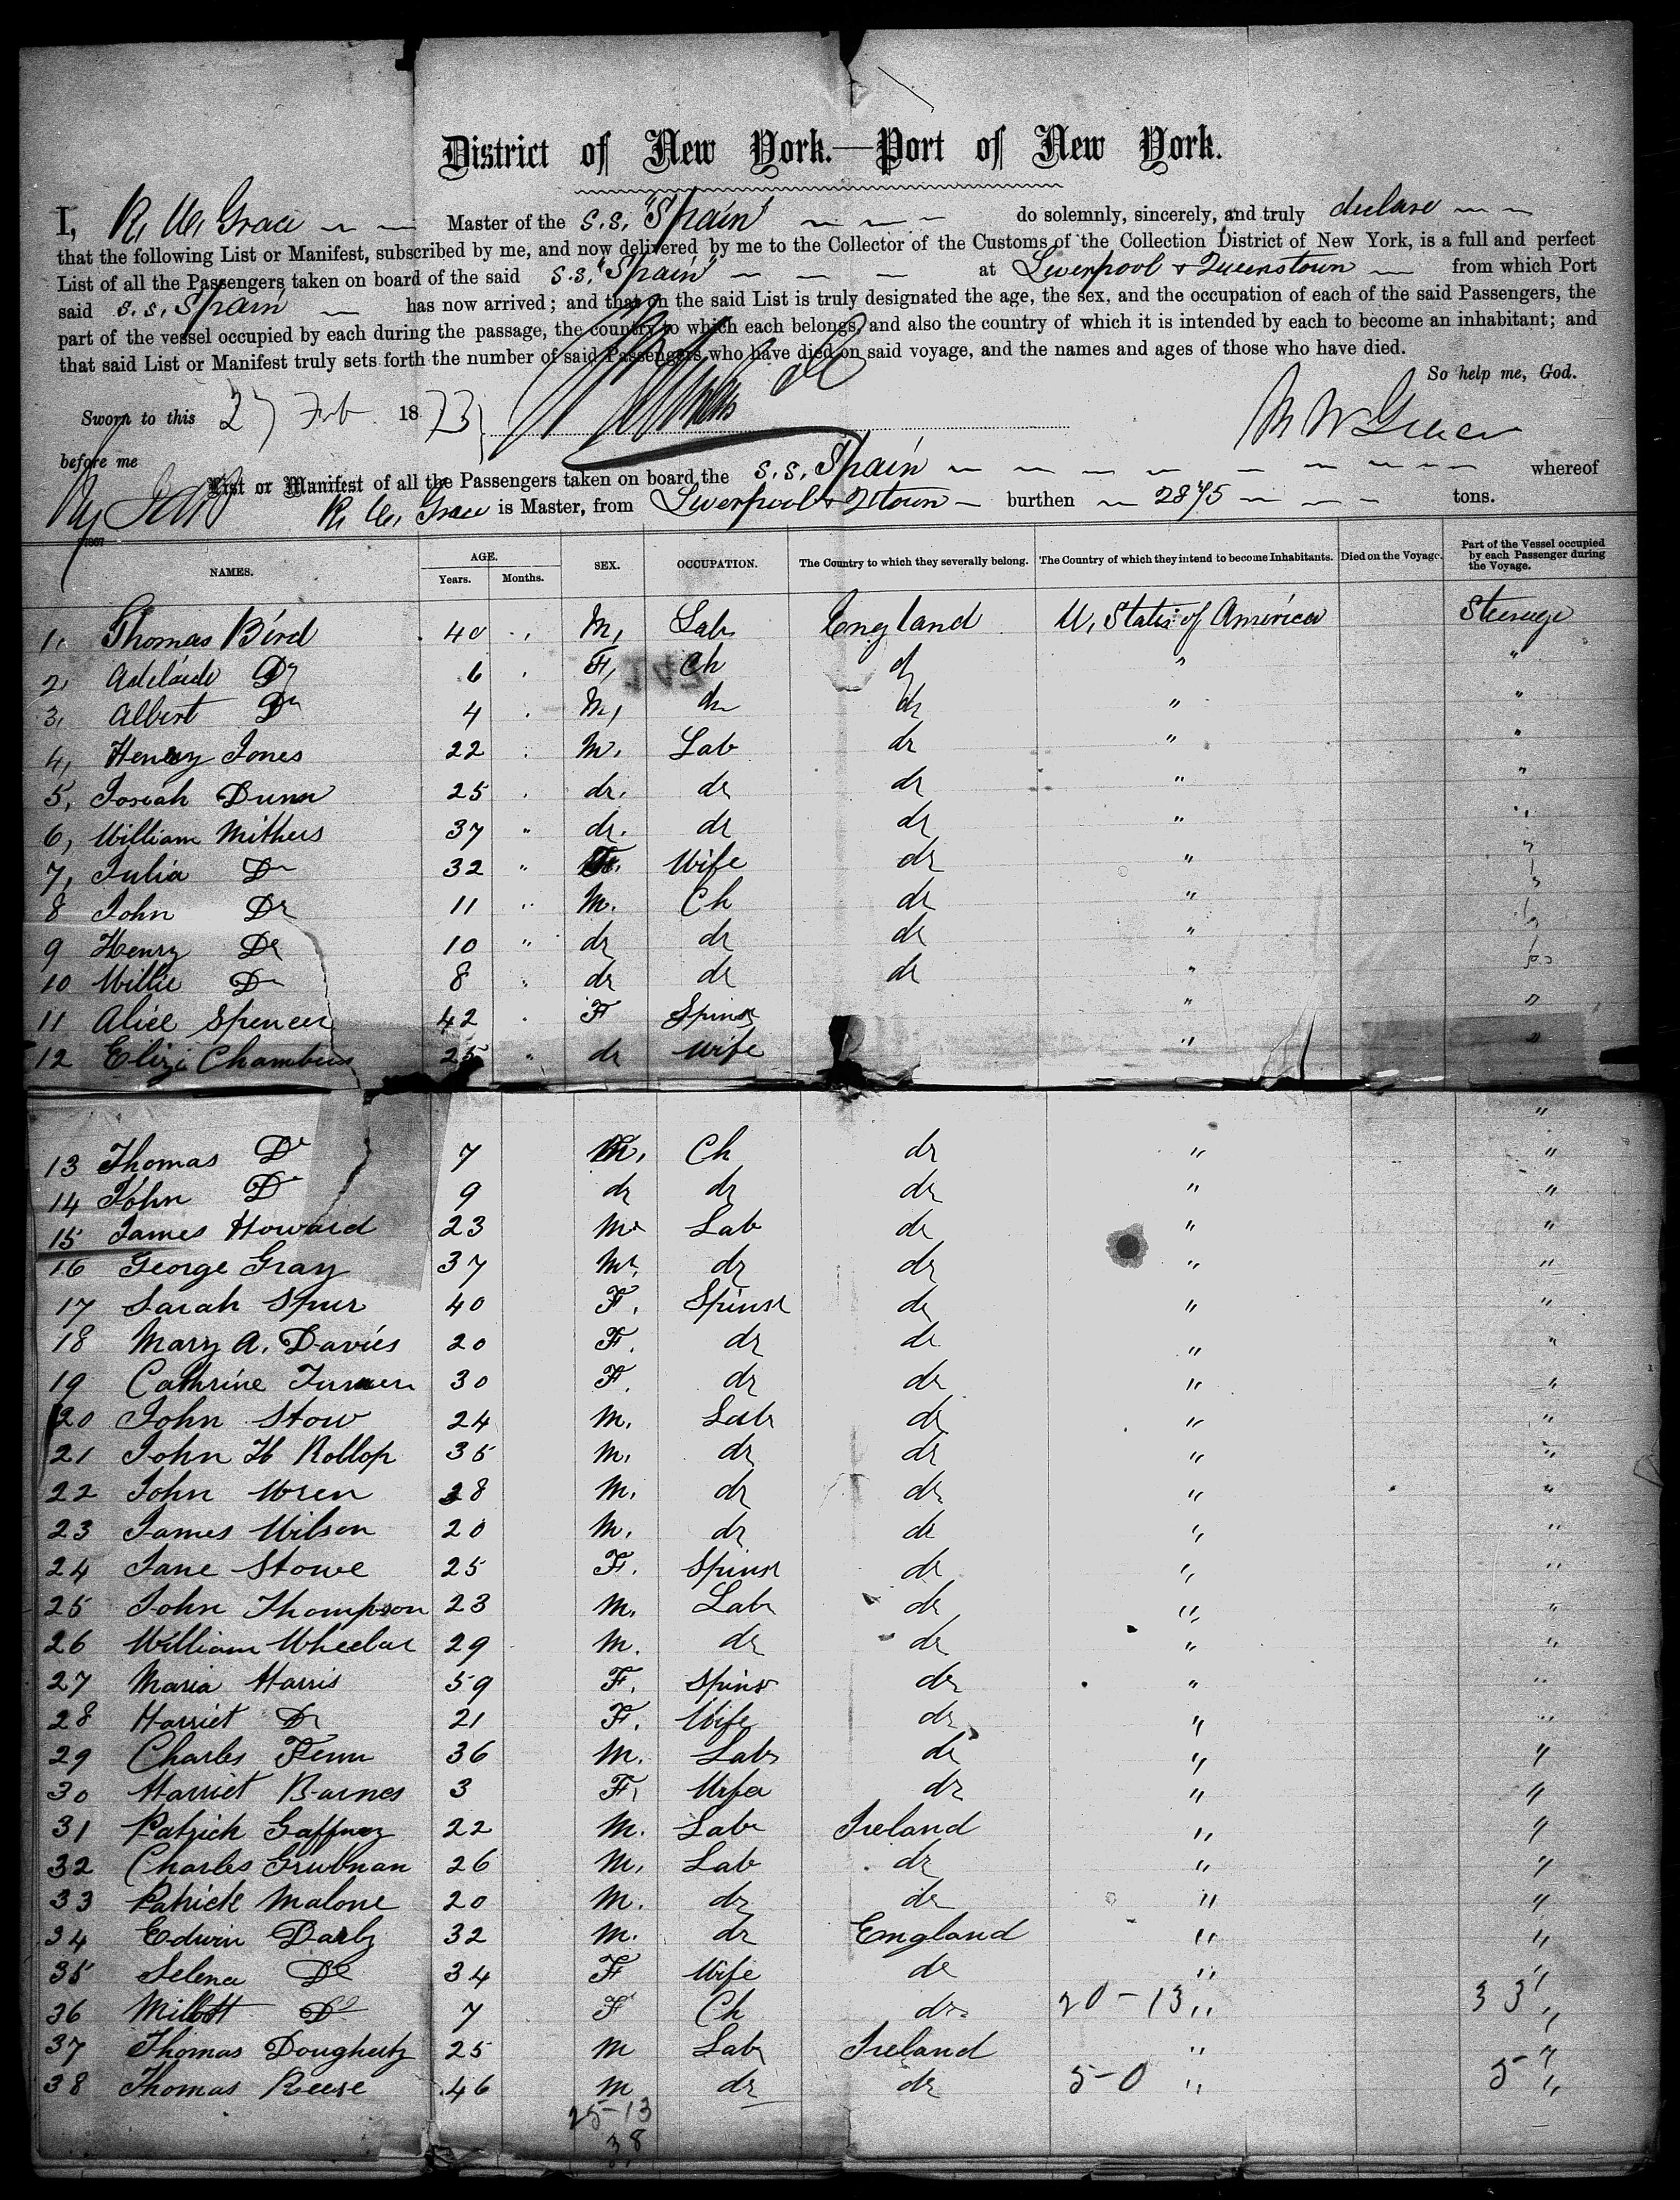 District of New York.—Port of New York.
I, R. W. Grace Master of the S.S. "Spain" do solemnly, sincerely, and truly declare
that the following List or Manifest, subscribed by me, and now delivered by me to the Collector of the Customs of the Collection District of New York, is a full and perfect
List of all the Passengers taken on board of the said S.S. "Spain" at Liverpool & Queenstown from which Port
said S.S. Spain has now arrived; and that on the said List is truly designated the age, the sex, and the occupation of each of the said Passengers, the
part of the vessel occupied by each during the passage, the country to which each belongs, and also the country of which it is intended by each to become an inhabitant; and
that said List or Manifest truly sets forth the number of said Passengers who have died on said voyage, and the names and ages of those who have died.
So help me, God.
Sworn to this 27 Feb 1873 R W Grace
before me
List or Manifest of all the Passengers taken on board the S.S. Spain whereof
R. W. Grace is Master, from Liverpool & Qtown burthen 2875 tons.
NAMES. AGE. Years. Months. SEX. OCCUPATION. The Country to which they severally belong. The Country of which they intend to become Inhabitants. Died on the Voyage. Part of the Vessel occupied by each Passenger during the Voyage.
1, Thomas Bird 40 " M, Lab England U, States of America Steerage
2, Adelaide Do 6 " F, Ch do " "
3, Albert Do 4 " M, do do " "
4, Henry Jones 22 " M, Lab do " "
5, Josiah Dunn 25 " do. do do " "
6, William Mithers 37 " do. do do " "
7, Julia Do 32 " F. Wife do " "
8 John Do 11 " M. Ch do " "
9 Henry Do 10 " do do do " "
10 Willie Do 8 " do do do " "
11 Alice Spencer 42 " F Spins " "
12 Eliza Chambers 25 " do Wife " "
13 Thomas Do 7 M, Ch do " "
14 John Do 9 do do do " "
15 James Howard 23 M Lab do " "
16 George Gray 37 M, do do " "
17 Sarah Spur 40 F, Spinst do " "
18 Mary A. Davies 20 F. do do " "
19 Cathrine Turner 30 F. do do " "
20 John Stow 24 M. Lab do " "
21 John H Rollop 35 M, do do " "
22 John Wren 28 M. do do " "
23 James Wilson 20 M, do do " "
24 Jane Stowe 25 F. Spinst do " "
25 John Thompson 23 M, Lab do " "
26 William Wheeler 29 M. do do " "
27 Maria Harris 59 F. Spins do " "
28 Harriet Do 21 F. Wife do " "
29 Charles Fenn 36 M. Lab do " "
30 Harriet Barnes 3 F, Wife do " "
31 Patrick Gaffney 22 M. Lab Ireland " "
32 Charles Grubnan 26 M, Lab do " "
33 Patrick Malone 20 M. do do " "
34 Edwin Darby 32 M. do England " "
35 Selena Do 34 F Wife do " "
36 Do 7 F Ch do 20-13 " 33 "
37 Thomas Dougherty 25 M Lab Ireland " "
38 Thomas Reese 46 M do do 5-0 " 5 "
25-13
38